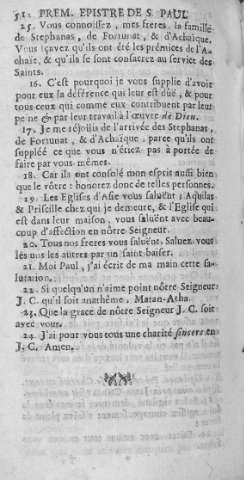 512 PREM. EPISTRE DE S. PAUL
15. Vous connoissez, mes freres, la famille
de Stephanas, de Fortunat, & d'Achaïque.
Vous sçavez qu'ils ont été les prémices de l'A-
chaïe, & qu'ils se sont consacrez au service des
Saints.
16. C'est pourquoi je vous supplie d'avoir
pour eux la déference qui leur est duë, & pour
tous ceux qui comme eux contribuent par leur
peine & par leur travail à l'œuvre de Dieu.
17. Je me réjoüis de l'arrivée des Stephanas,
de Fortunat, & d'Achaïque, parce qu'ils ont
suppléé ce que vous n'étiez pas à portée de
faire par vous-mêmes.
18. Car ils ont consolé mon esprit aussi bien
que le vôtre: honorez donc de telles personnes.
19. Les Eglises d'Asie vous saluënt; Aquilas
& Priscille chez qui je demeure, & l'Eglise qui
est dans leur maison, vous saluënt avec beau-
coup d'affection en nôtre Seigneur.
20. Tous nos freres vous saluënt. Saluez-vous
les uns les autres par un saint baiser.
21. Moi Paul, j'ai écrit de ma main cette sa-
lutation.
22. Si quelqu'un n'aime point nôtre Seigneur
J. C. qu'il soit anathême, Maran-Atha.
23. Que la grace de nôtre Seigneur J. C. soit
avec vous.
24. J'ai pour vous tous une charité sincere en
J. C. Amen.